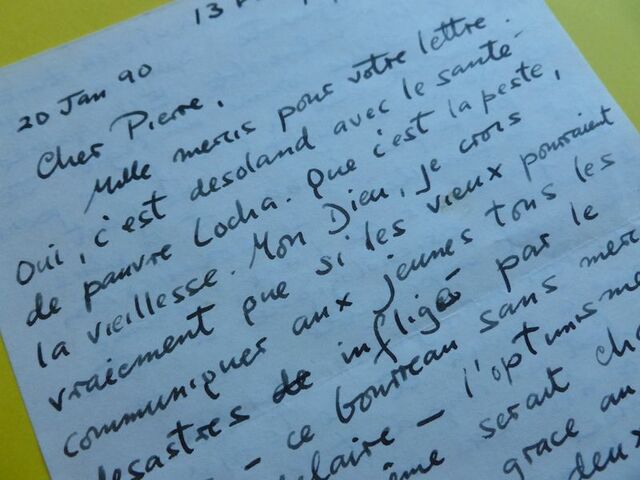 13
20 Jan 90
Cher Pierre,
Mille mercis pour votre lettre.
Oui, c'est desoland avec le santé
de pauvre Locha. Que c'est la peste,
la vieillesse. Mon Dieu, je crois
vraiement que si les vieux pourraient
communiquer aux jeunes tous les
desastres de infligés par le
- ce bourreau sans merc
claire - l'optimisme
ême serait ch
grace au
deux